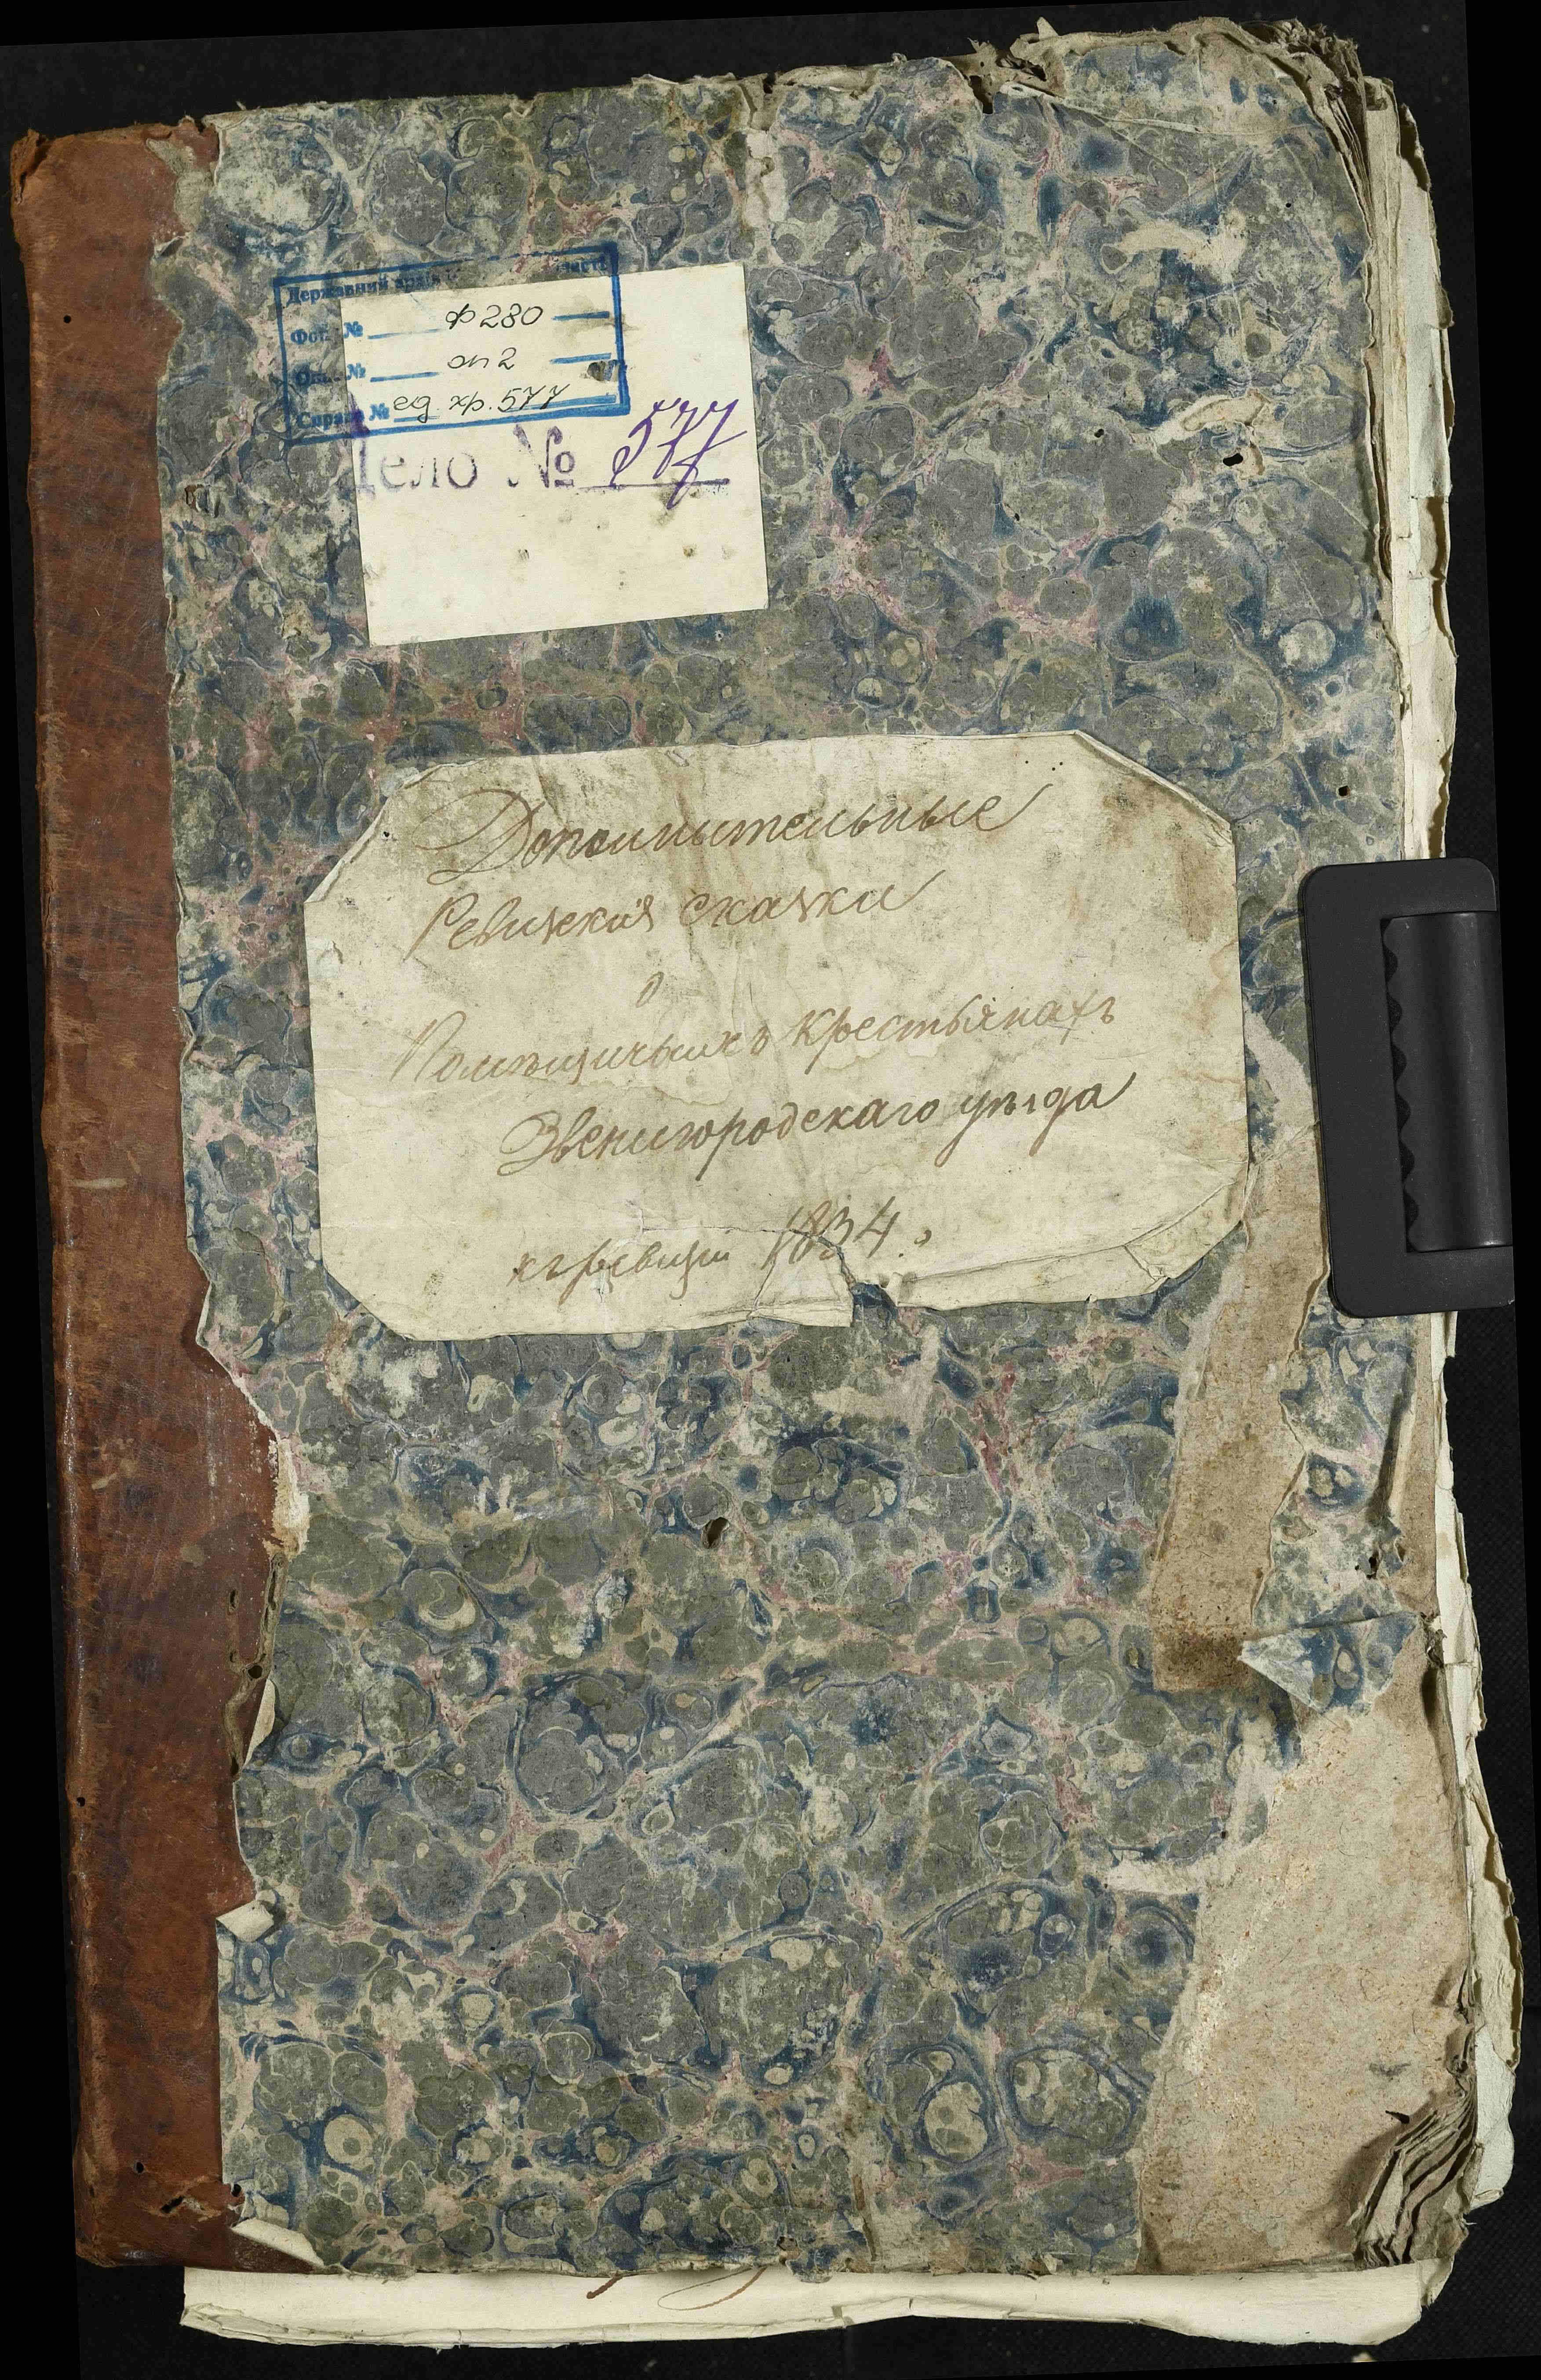 Державний архів
Фонд № ф 280
№ оп 2
Справа № ед хр. 577
Дело № 577
Дополнытельные
Ревизскія сказки
о
Помѣщичьихъ Крестьянахъ
Звенигородскаго уѣзда
къ ревизіи 1834.